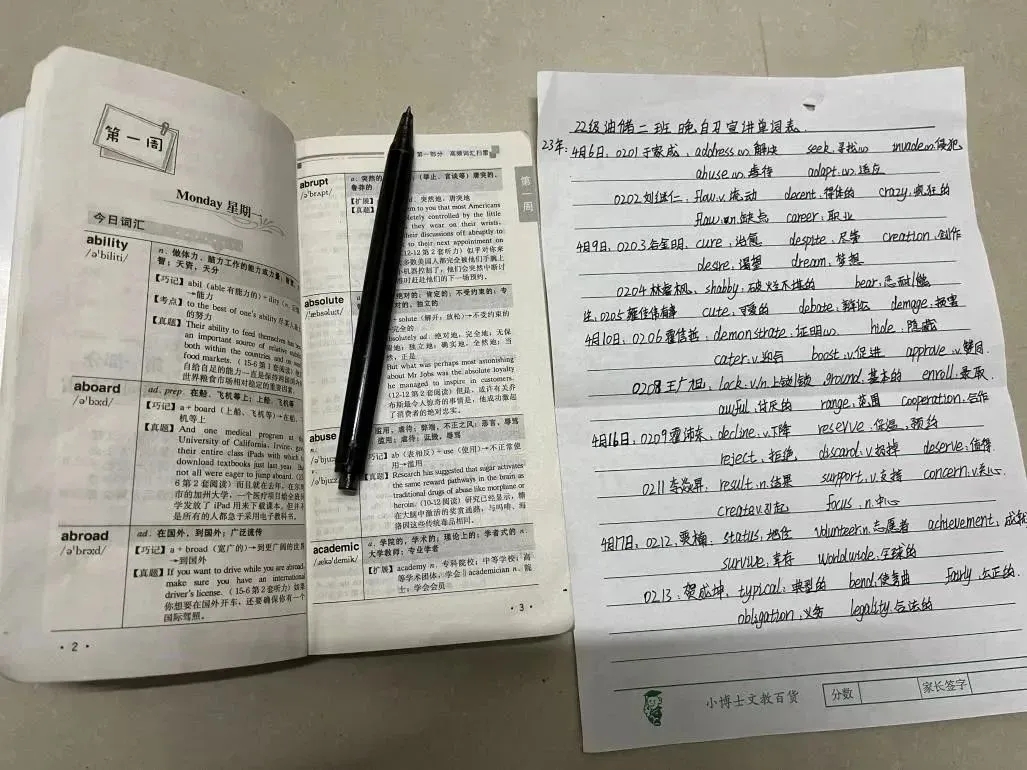 第一周
Monday 星期一
今日词汇
ability
/ə'biliti/
n. 做体力、脑力工作的能力或力量;
智;天资,天分
【巧记】abil (able 有能力的) +
→能力
【考点】to the best of one's ability 尽某人
的努力
【真题】Their ability to feed themselves has
an important source of relative
both within the countries and on
food markets. (15-6 第1套阅读)
自给自足的能力一直是保持
世界粮食市场相对稳定的重要因素。
aboard
/ə'bɔːd/
ad. prep. 在船、飞机等上;上船、飞机等
【巧记】a + board (上船、飞机等) →在船、
机等上
【真题】And one medical program at
University of California, Irvine,
their entire class iPads with which
download textbooks just last year. B
not all were eager to jump aboard.
6 第2套阅读) 而且就在去年,
市的加州大学,一个医疗项目给全
学发放了 iPad 用来下载课本。但并
是所有的人都急于采用电子教科书。
abroad
/ə'brɔːd/
ad. 在国外,到国外;广泛流传
【巧记】a + broad (宽广的) →到更广阔的世
→到国外
【真题】If you want to drive while you are abroad,
make sure you have an international
driver's license. (15-6 第2套听力) 如果
你想要在国外开车,还要确保你有一
国际驾照。
· 2 ·
第一部分 高频词汇扫雷
第一周
abrupt
/ə'brʌpt/
a. 突然的
(举止、言谈等) 唐突的,
鲁莽的
【扩展】
ad. 突然地,唐突地
【真题】
to you that most Americans
completely controlled by the little
they wear on their wrists,
their discussions of abruptly to
to their next appointment on
(12-12 第2套听力) 似乎对你来
多数美国人都完全被他们手腕上
小机器控制了,他们会突然中断讨
时赶赴他们的下一场预约。
absolute
/'æbsəluːt/
绝对的;肯定的;不受约束的;专
对的,独立的
solute (解开;放松) →不受约束的
完全的
absolutely ad. 绝对地,完全地;无保
地;独立地;确实地,全然地;当
然,正是
But what was perhaps most astonishing
about Mr Jobs was the absolute loyalty
he managed to inspire in customers.
(12-12 第2套阅读) 但是,或许有关乔
布斯最令人惊奇的事情是,他成功激起
了消费者的绝对忠实。
abuse
n.
/ə'bjuːs/
/ə'bjuːz/
滥用,虐待;弊端,不正之风;恶言,辱骂
滥用;虐待;诋毁,辱骂
【巧记】ab (表相反) + use (使用) →不正常使
用→滥用
【真题】Research has suggested that sugar activates
the same reward pathways in the brain as
traditional drugs of abuse like morphine or
heroin. (10-12 阅读) 研究已经显示,糖
在大脑中激活的奖赏通路,与吗啡、海
洛因这些传统毒品相同。
academic
/ˌækə'demik/
a. 学院的,学术的;理论上的;学者式的 n.
大学教师;专业学者
【扩展】academy n. 专科院校;中等学校;高
等学术团体,学会‖academician n. 院
士;学会会员
· 3 ·
22级油储二班晚自习宣讲单词表.
23年:4月6日,0201于家成,address.v.解决 seek.寻找v. invade.v.侵犯
abuse.v.虐待 adapt.v.适应
0202刘继仁,flow.v.流动 decent.得体的 crazy.疯狂的
flaw.n.缺点 career.职业
4月9日,0203 cure.治愈 despite.尽管 creation.创作
desire.渴望 dream.梦想
0204林睿枫,shabby.破烂不堪的 bear.忍耐/熊
0205 cute.可爱的 debate.辩论 demage.损害
4月10日,0206霍信哲,demonstrate.证明v. hide.隐藏
cater.v.迎合 boost.v.促进 approve.v.赞同.
0208王广旭,lock.v./n.上锁/锁 ground.基本的 enroll.录取.
awful.讨厌的 range.范围 cooperation.合作
4月16日,0209霍沛东,decline.v.下降 reserve.保留、预约
reject.拒绝. discard.v.扔掉 deserve.值得.
0211 result.n.结果 support.v.支持 concern.v.关心.
create.v.引起 focus.n.中心
4月17日,0212.贾楠,status.地位 volunteer.n.志愿者 achievement.成就
survive.幸存 worldwide.全球的
0213.贺成坤,typical.典型的 bend.使弯曲 fairly.公正的.
obligation.义务 legality.合法的
小博士文教百货 分数 家长签字